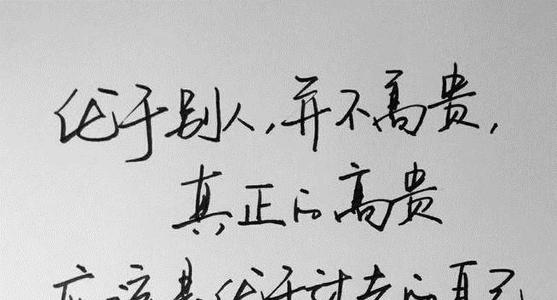 优于别人,并不高贵,
真正的高贵
应该是优于过去的自己